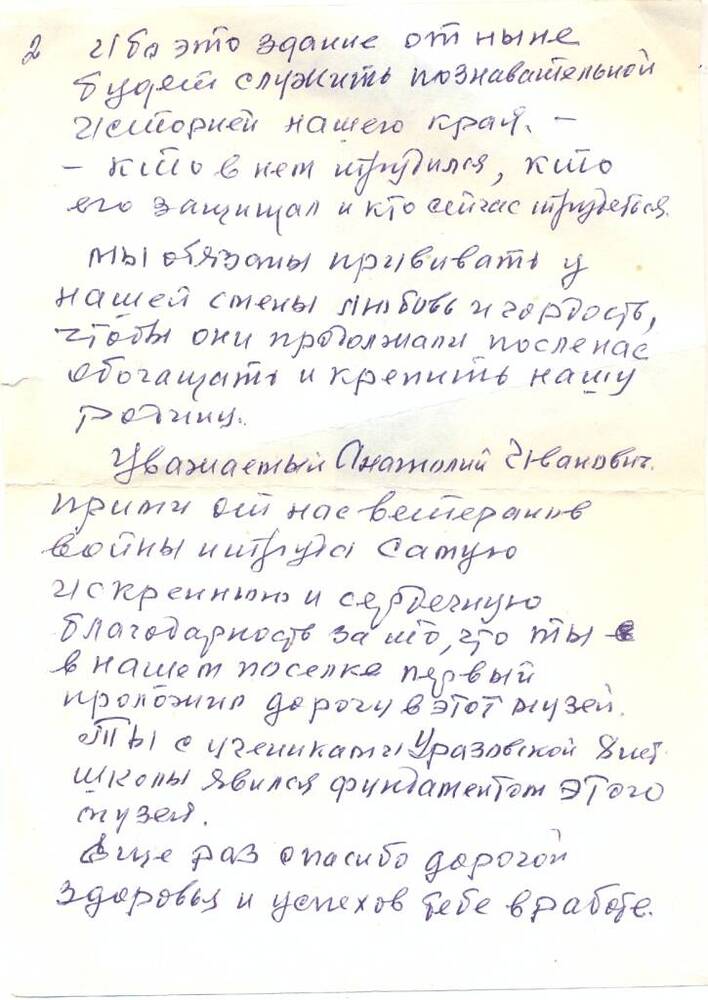 2 Ибо это здание от ныне
будет служить познавательной
историей нашего края. –
– кто в нем трудился, кто
его защищал и кто сейчас трудеться.
мы обязаны прививать у
нашей смены любовь и гордость,
чтобы они продолжали после нас
обогащать и крепить нашу
родину.
Уважаемый Анатолий Иванович.
прими от нас ветеранов
войны и труда самую
искреннюю и сердечную
благодарность за то, что ты
в нашем поселке первый
проложил дорогу в этот музей.
Ты с учениками Уразовской
школы явился фундаментом этого
музея.
Еще раз спасибо дорогой
здоровья и успехов тебе в работе.